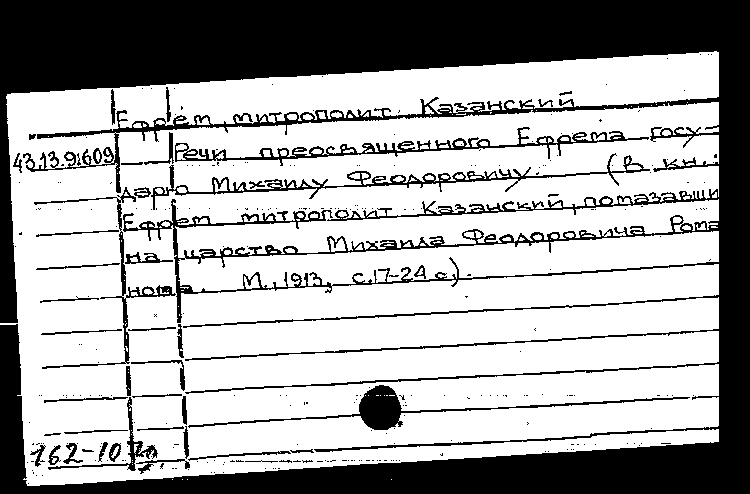 Ефрем, митрополит Казанский
43.13.9.609 Речи преосвященного Ефрема госу-
дарю Михаилу Феодоровичу. (В кн.:
Ефрем митрополит Казанский, помазавши
на царство Михаила Феодоровича Рома
нова. М., 1913, с.17-24 с).
162-10